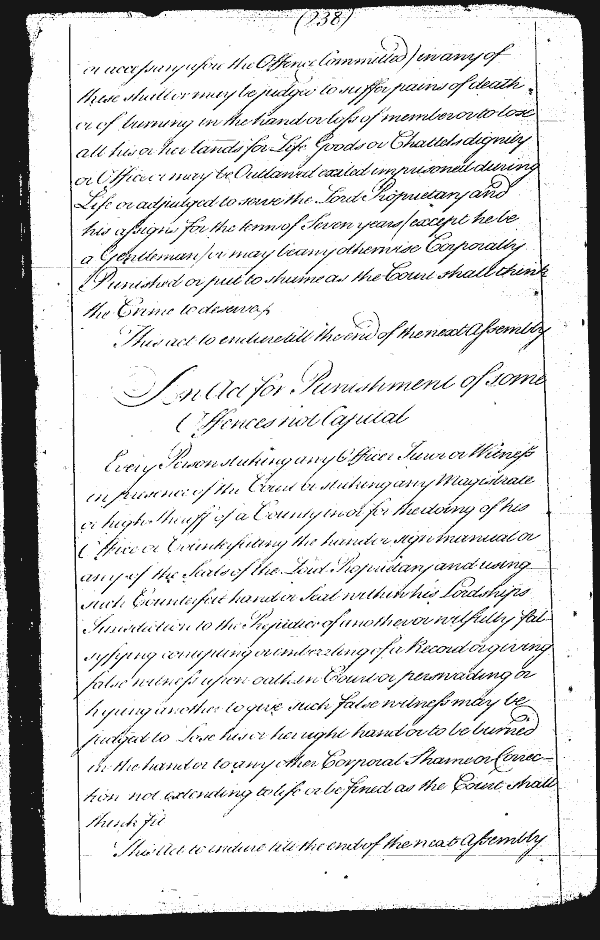 (238)
or accessary before the Offence Committed) in any of
these shall or may be judged to suffer pains of death
or of burning in the hand or loss of member or to lose
all his or her lands for Life Goods or Chattels dignity
or Office or may be Outlawed exiled imprisoned during
Life or adjudged to serve the Lord Proprietary and
his assigns for the term of Seven years (except he be
a Gentleman) or may be any otherwise Corporally
Punished or put to shame as the Court shall think
the Crime to deserve
This act to endure till the end of the next Assembly
An Act for Punishment of some
Offences not Capital
Every Person striking any Officer Juror or Witness
in presence of the Court or striking any Magistrate
or high Sheriff of a County in or for the doing of his
Office or Counterfeiting the hand or sign manual or
any of the Seals of the Lord Proprietary and using
such Counterfeit hand or Seal within his Lordships
Jurisdiction to the Prejudice of another or wilfully fal-
syfying corrupting or embezzling of a Record or giving
false witness upon oath in Court or perswading or
hyring another to give such false witness may be
judged to Lose his or her right hand or to be burned
in the hand or to any other Corporal Shame or Correc-
tion not extending to life or be fined as the Court shall
think fit
This Act to endure till the end of the next Assembly